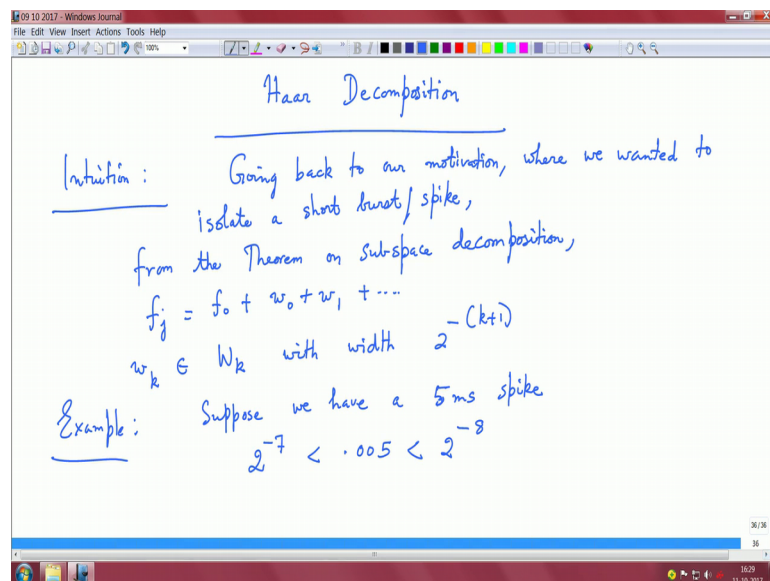 09 10 2017 - Windows Journal
File Edit View Insert Actions Tools Help
100%
Haar Decomposition
Intuition : Going back to our motivation, where we wanted to
isolate a short burst / spike,
from the Theorem on Sub-space decomposition,
f_j = f_0 + w_0 + w_1 + ....
w_k ∈ W_k with width 2^{-(k+1)}
Example : Suppose we have a 5 ms spike
2^{-7} < .005 < 2^{-8}
36/36
36
16:29
11-10-2017